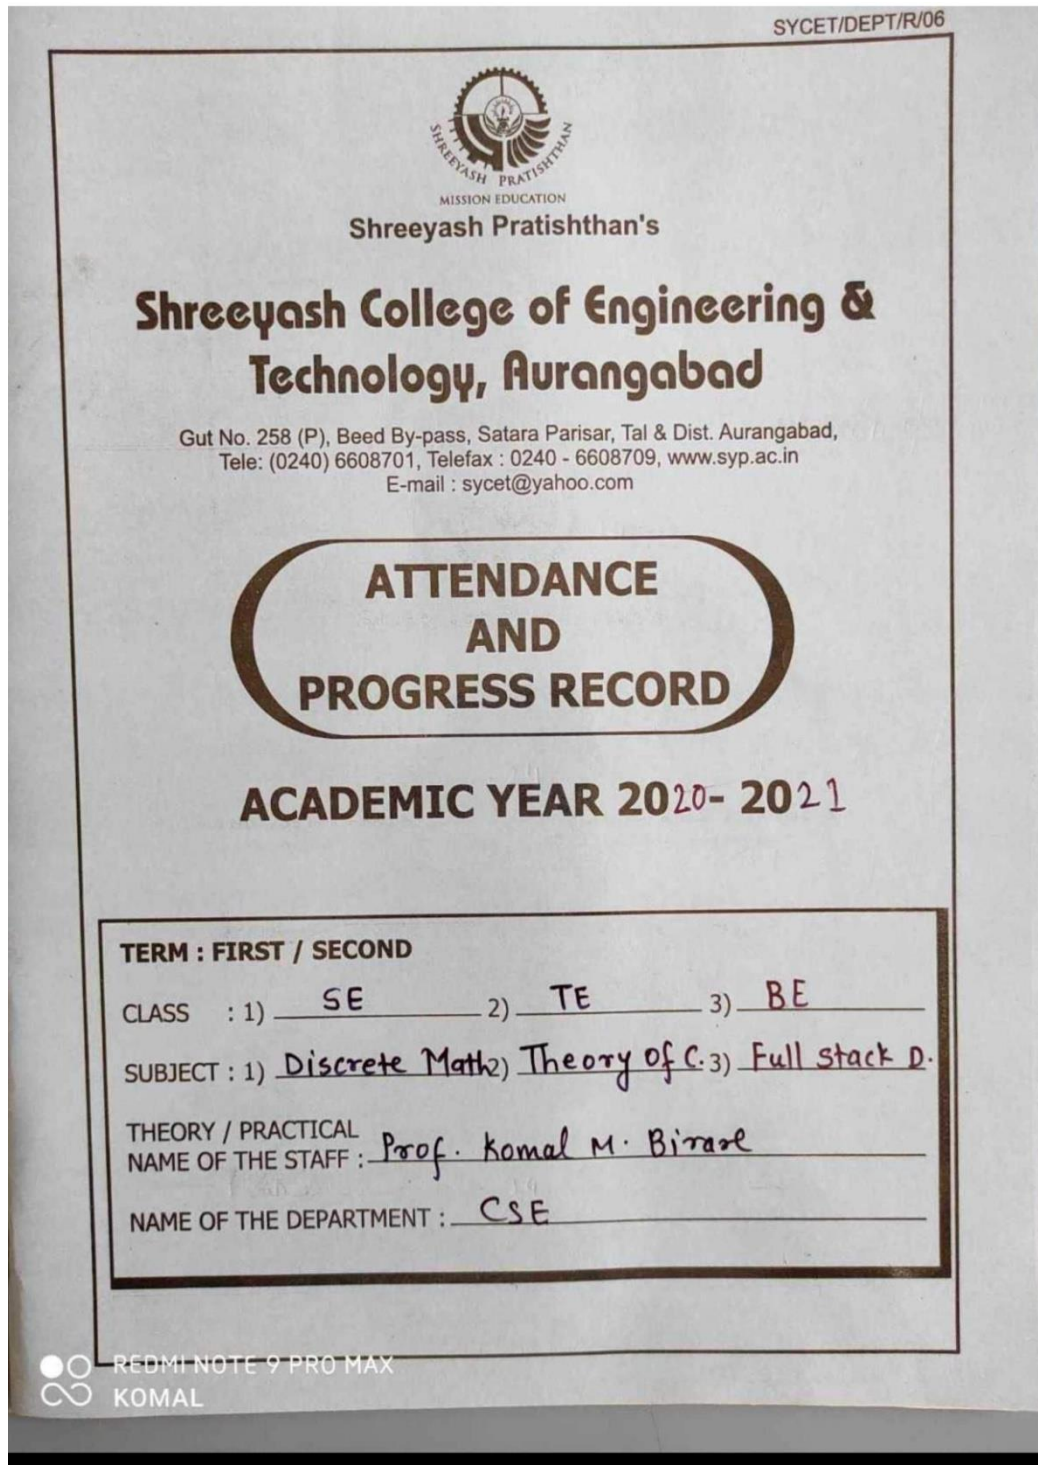 SYCET/DEPT/R/06
SHREEYASH PRATISHTHAN
MISSION EDUCATION
Shreeyash Pratishthan's
Shreeyash College of Engineering &
Technology, Aurangabad
Gut No. 258 (P), Beed By-pass, Satara Parisar, Tal & Dist. Aurangabad,
Tele: (0240) 6608701, Telefax : 0240 - 6608709, www.syp.ac.in
E-mail : sycet@yahoo.com
ATTENDANCE
AND
PROGRESS RECORD
ACADEMIC YEAR 2020- 2021
TERM : FIRST / SECOND
CLASS : 1) SE 2) TE 3) BE
SUBJECT : 1) Discrete Math 2) Theory of C. 3) Full stack D.
THEORY / PRACTICAL
NAME OF THE STAFF : Prof. Komal M. Birare
NAME OF THE DEPARTMENT : CSE
REDMI NOTE 9 PRO MAX
KOMAL